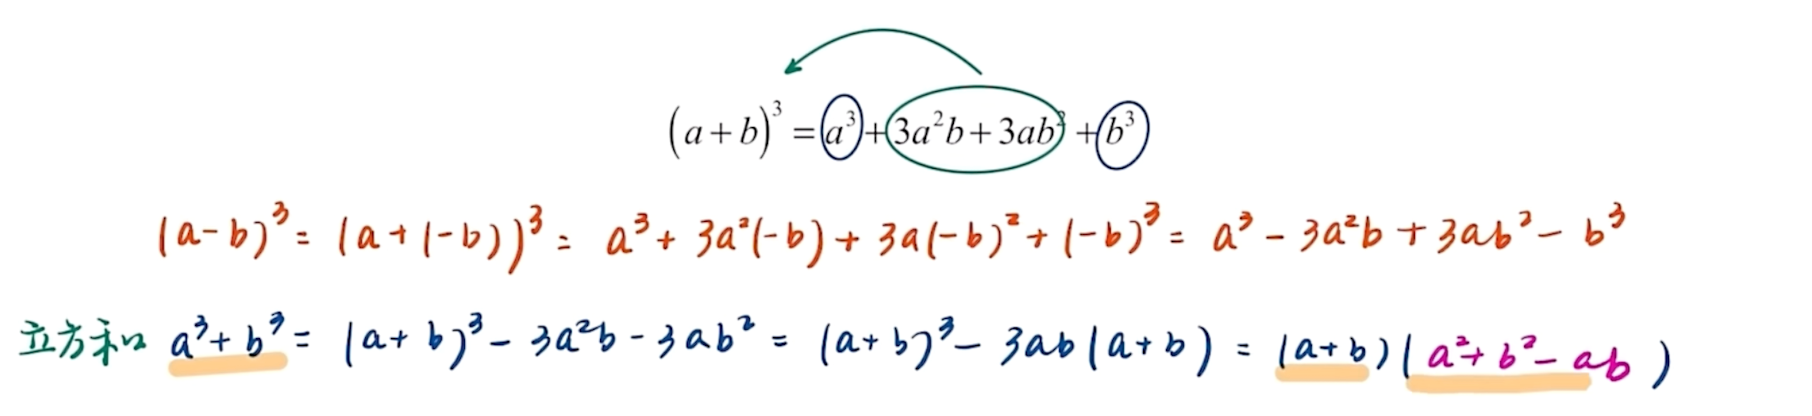 (a+b)³=a³+3a²b+3ab²+b³
(a-b)³=(a+(-b))³=a³+3a²(-b)+3a(-b)²+(-b)³=a³-3a²b+3ab²-b³
立方和 a³+b³=(a+b)³-3a²b-3ab²=(a+b)³-3ab(a+b)=(a+b)(a²+b²-ab)